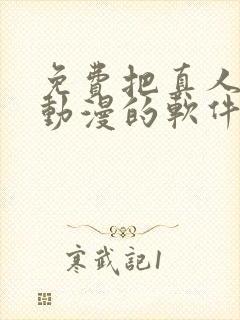 免費把真人
動漫的軟件
寒武記1